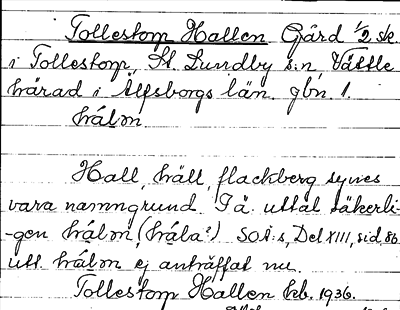 Tollestorp Hallen Gård 1/2 sk.
i Tollestorp, St. Lundby s:n, Vättle
härad i Älfsborgs län. gbn. 1.
hálṃ
Hall, häll, flackberg synes
vara namngrund. I ä. uttal säkerli-
-gen hálṃ (hála?) SOÄ:s, Del XIII, sid, 86
utt. hálṃ ej anträffat nu.
Tollestorp Hallen kb. 1936.